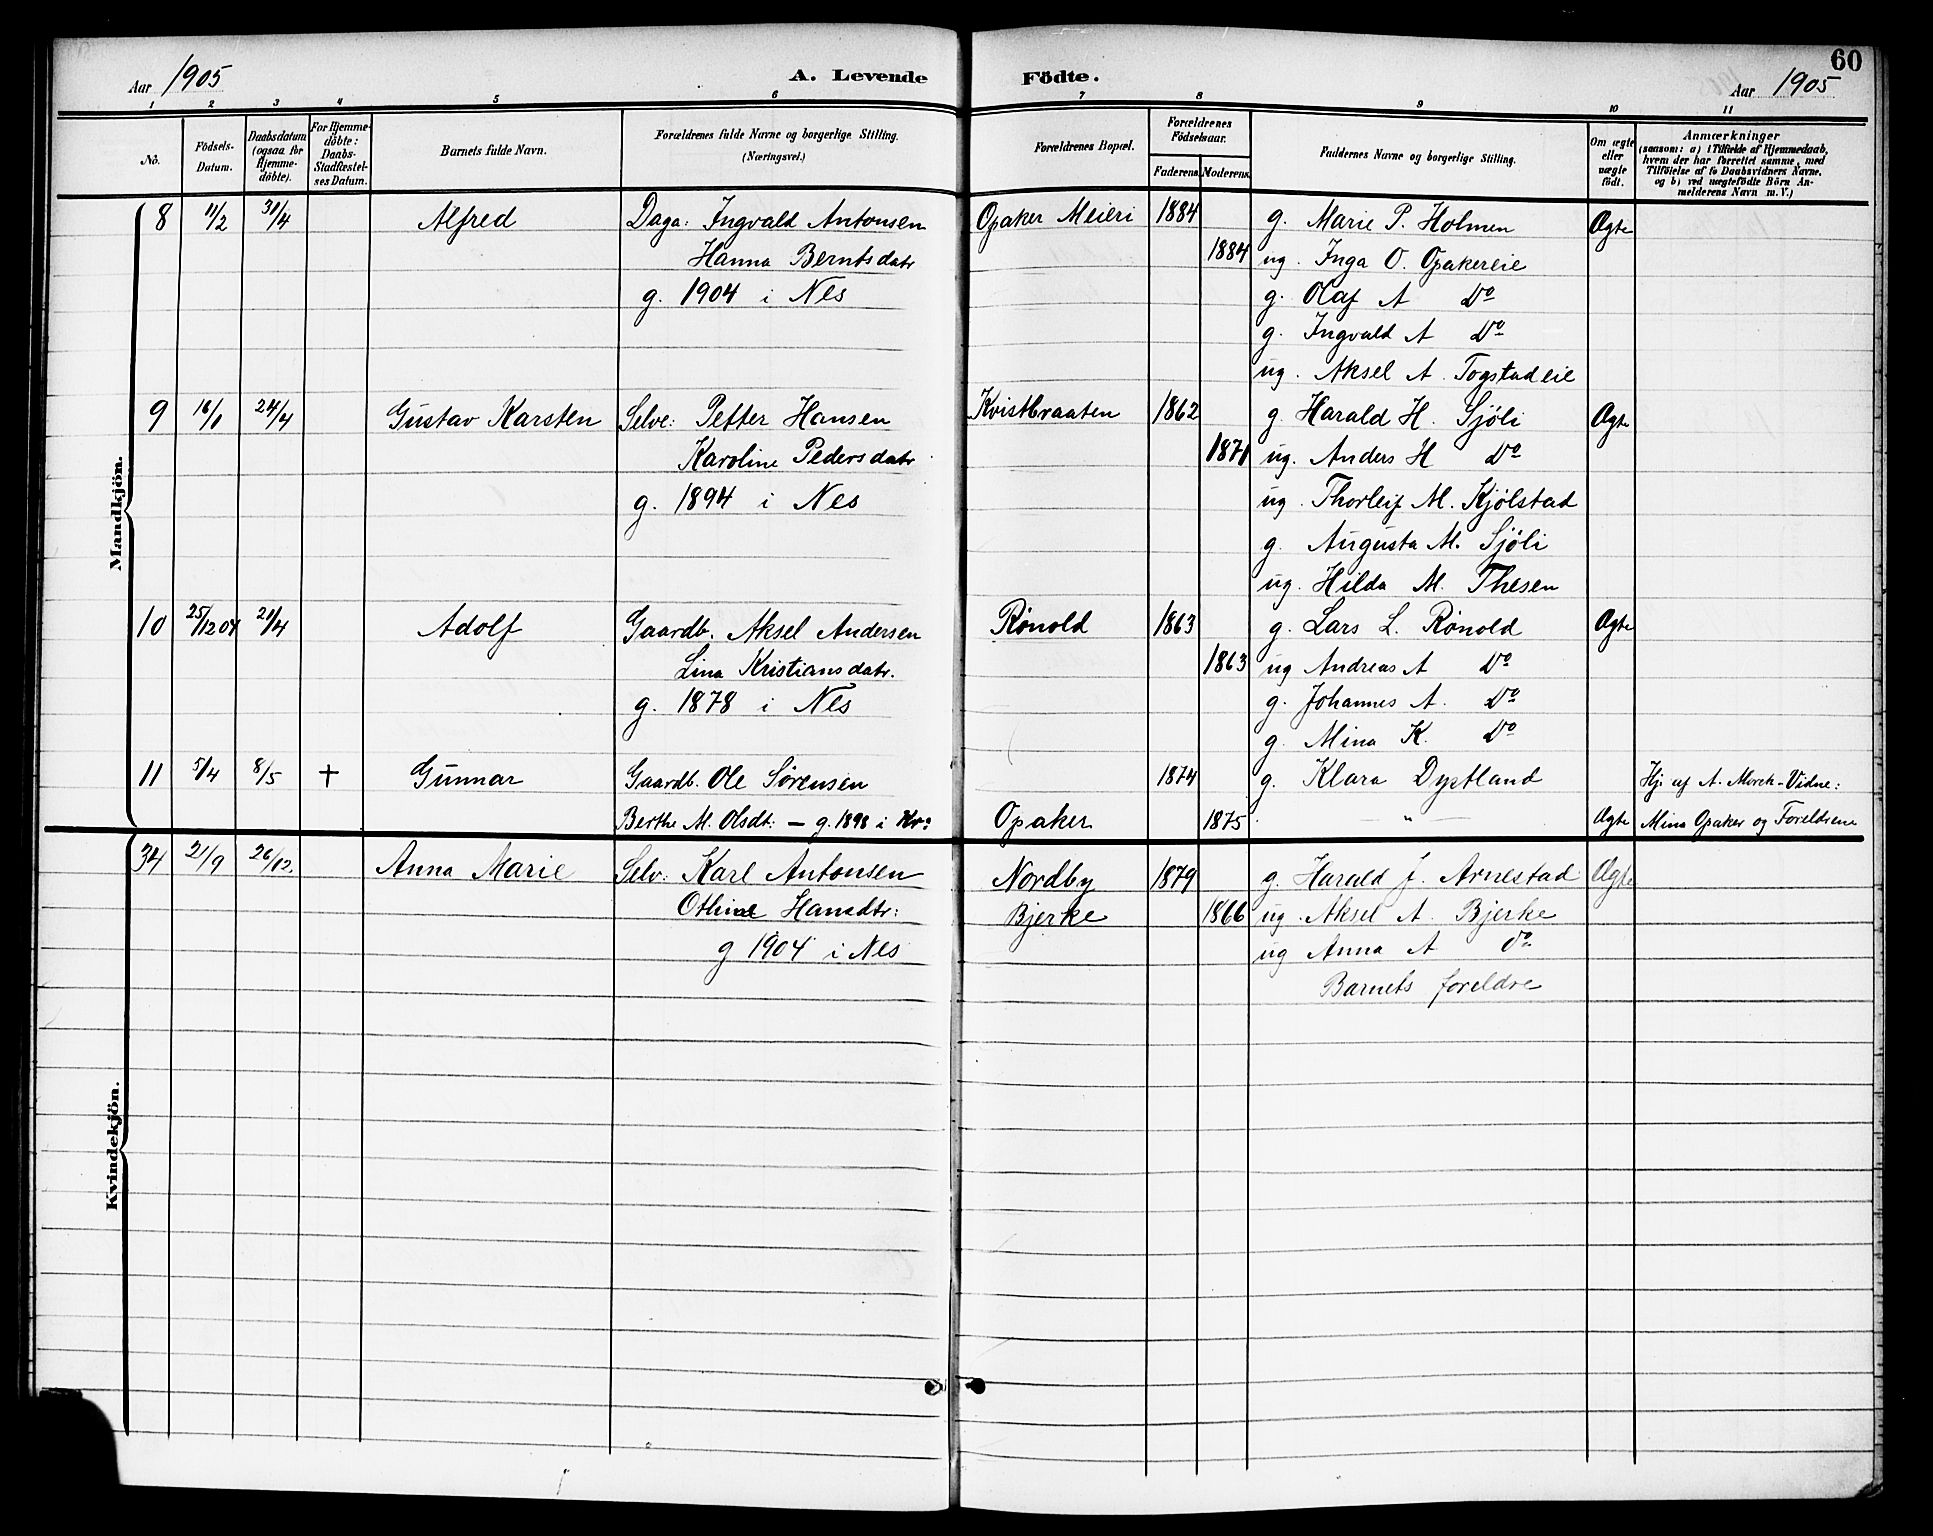 60
Aar 1905 A. Levende Födte. Aar 1905
1 2 3 4 5 6 7 8 9 10 11
No. Födsels-Datum. Daabsdatum (ogsaa for Hjemme-döbte). For Hjemme-döbte: Daabs-Stadfæstel-ses Datum. Barnets fulde Navn. Forældrenes fulde Navne og borgerlige Stilling. (Næringsvei.) Forældrenes Bopæl. Forældrenes Födselsaar. Faderens. Moderens. Faddernes Navne og borgerlige Stilling. Om ægte eller uægte födt. Anmærkninger (saasom: a) i Tilfælde af Hjemmedaab, hvem der har forrettet samme, med Tilföielse af to Daabsvidners Navne. og b) ved uægtefödte Börn An-melderens Navn m. V.)
Mandkjön.
8 11/2 31/4 Alfred Daga: Ingvald Antonsen Opaker Meieri 1884 g. Marie P. Holmen Ægte
Hanna Berntsdatr 1884 ug. Inga O. Opakereie
g. 1904 i Nes g. Olaf A Do
g. Ingvald A Do
ug. Aksel A. Togstadeie
9 16/1 24/4 Gustav Karsten Selve: Petter Hansen Kvistbraaten 1862 g. Harald H. Sjöli Ægte
Karoline Pedersdatr 1871 ug. Anders H Do
g. 1894 i Nes ug. Thorleif M. Kjølstad
g. Augusta M. Sjöli
ug. Hilda M. Thesen
10 25/12 04 21/4 Adolf Gaardb. Aksel Andersen Rønold 1863 g. Lars L. Rønold Ægte
Lina Kristiansdatr. 1863 ug Andreas A Do
g. 1878 i Nes g. Johannes A. Do
g. Mina K. Do
11 5/4 8/5 + Gunnar Gaardb. Ole Sørensen 1874 g. Klara Dystland Hj. af A. Morck - Vidne:
Berthe M. Olsdt: — g. 1898 i Kra Opaker 1875 — " — Ægte Mina Opaker og Foreldrene
Kvindekjön.
34 21/9 26/12. Anna Marie Selv: Karl Antonsen Nordby 1879 g. Harald J. Arnestad Ægte
Othine Hansdtr: Bjerke 1866 ug. Aksel A. Bjerke
g 1904 i Nes ug Anna A Do
Barnets foreldre